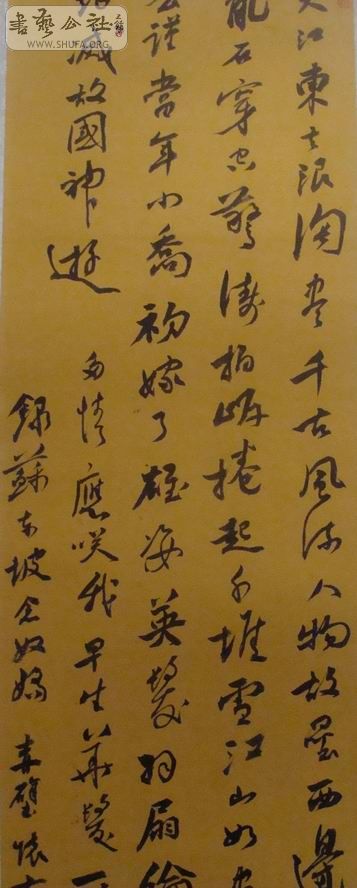 書藝公社
WWW.SHUFA.ORG
大江東去浪淘盡千古風流人物故壘西邊
亂石穿空驚濤拍岸捲起千堆雪江山如畫
公瑾當年小喬初嫁了雄姿英發羽扇綸
滅故國神遊
多情應笑我早生華髮一
錄蘇東坡念奴嬌 赤壁懷古